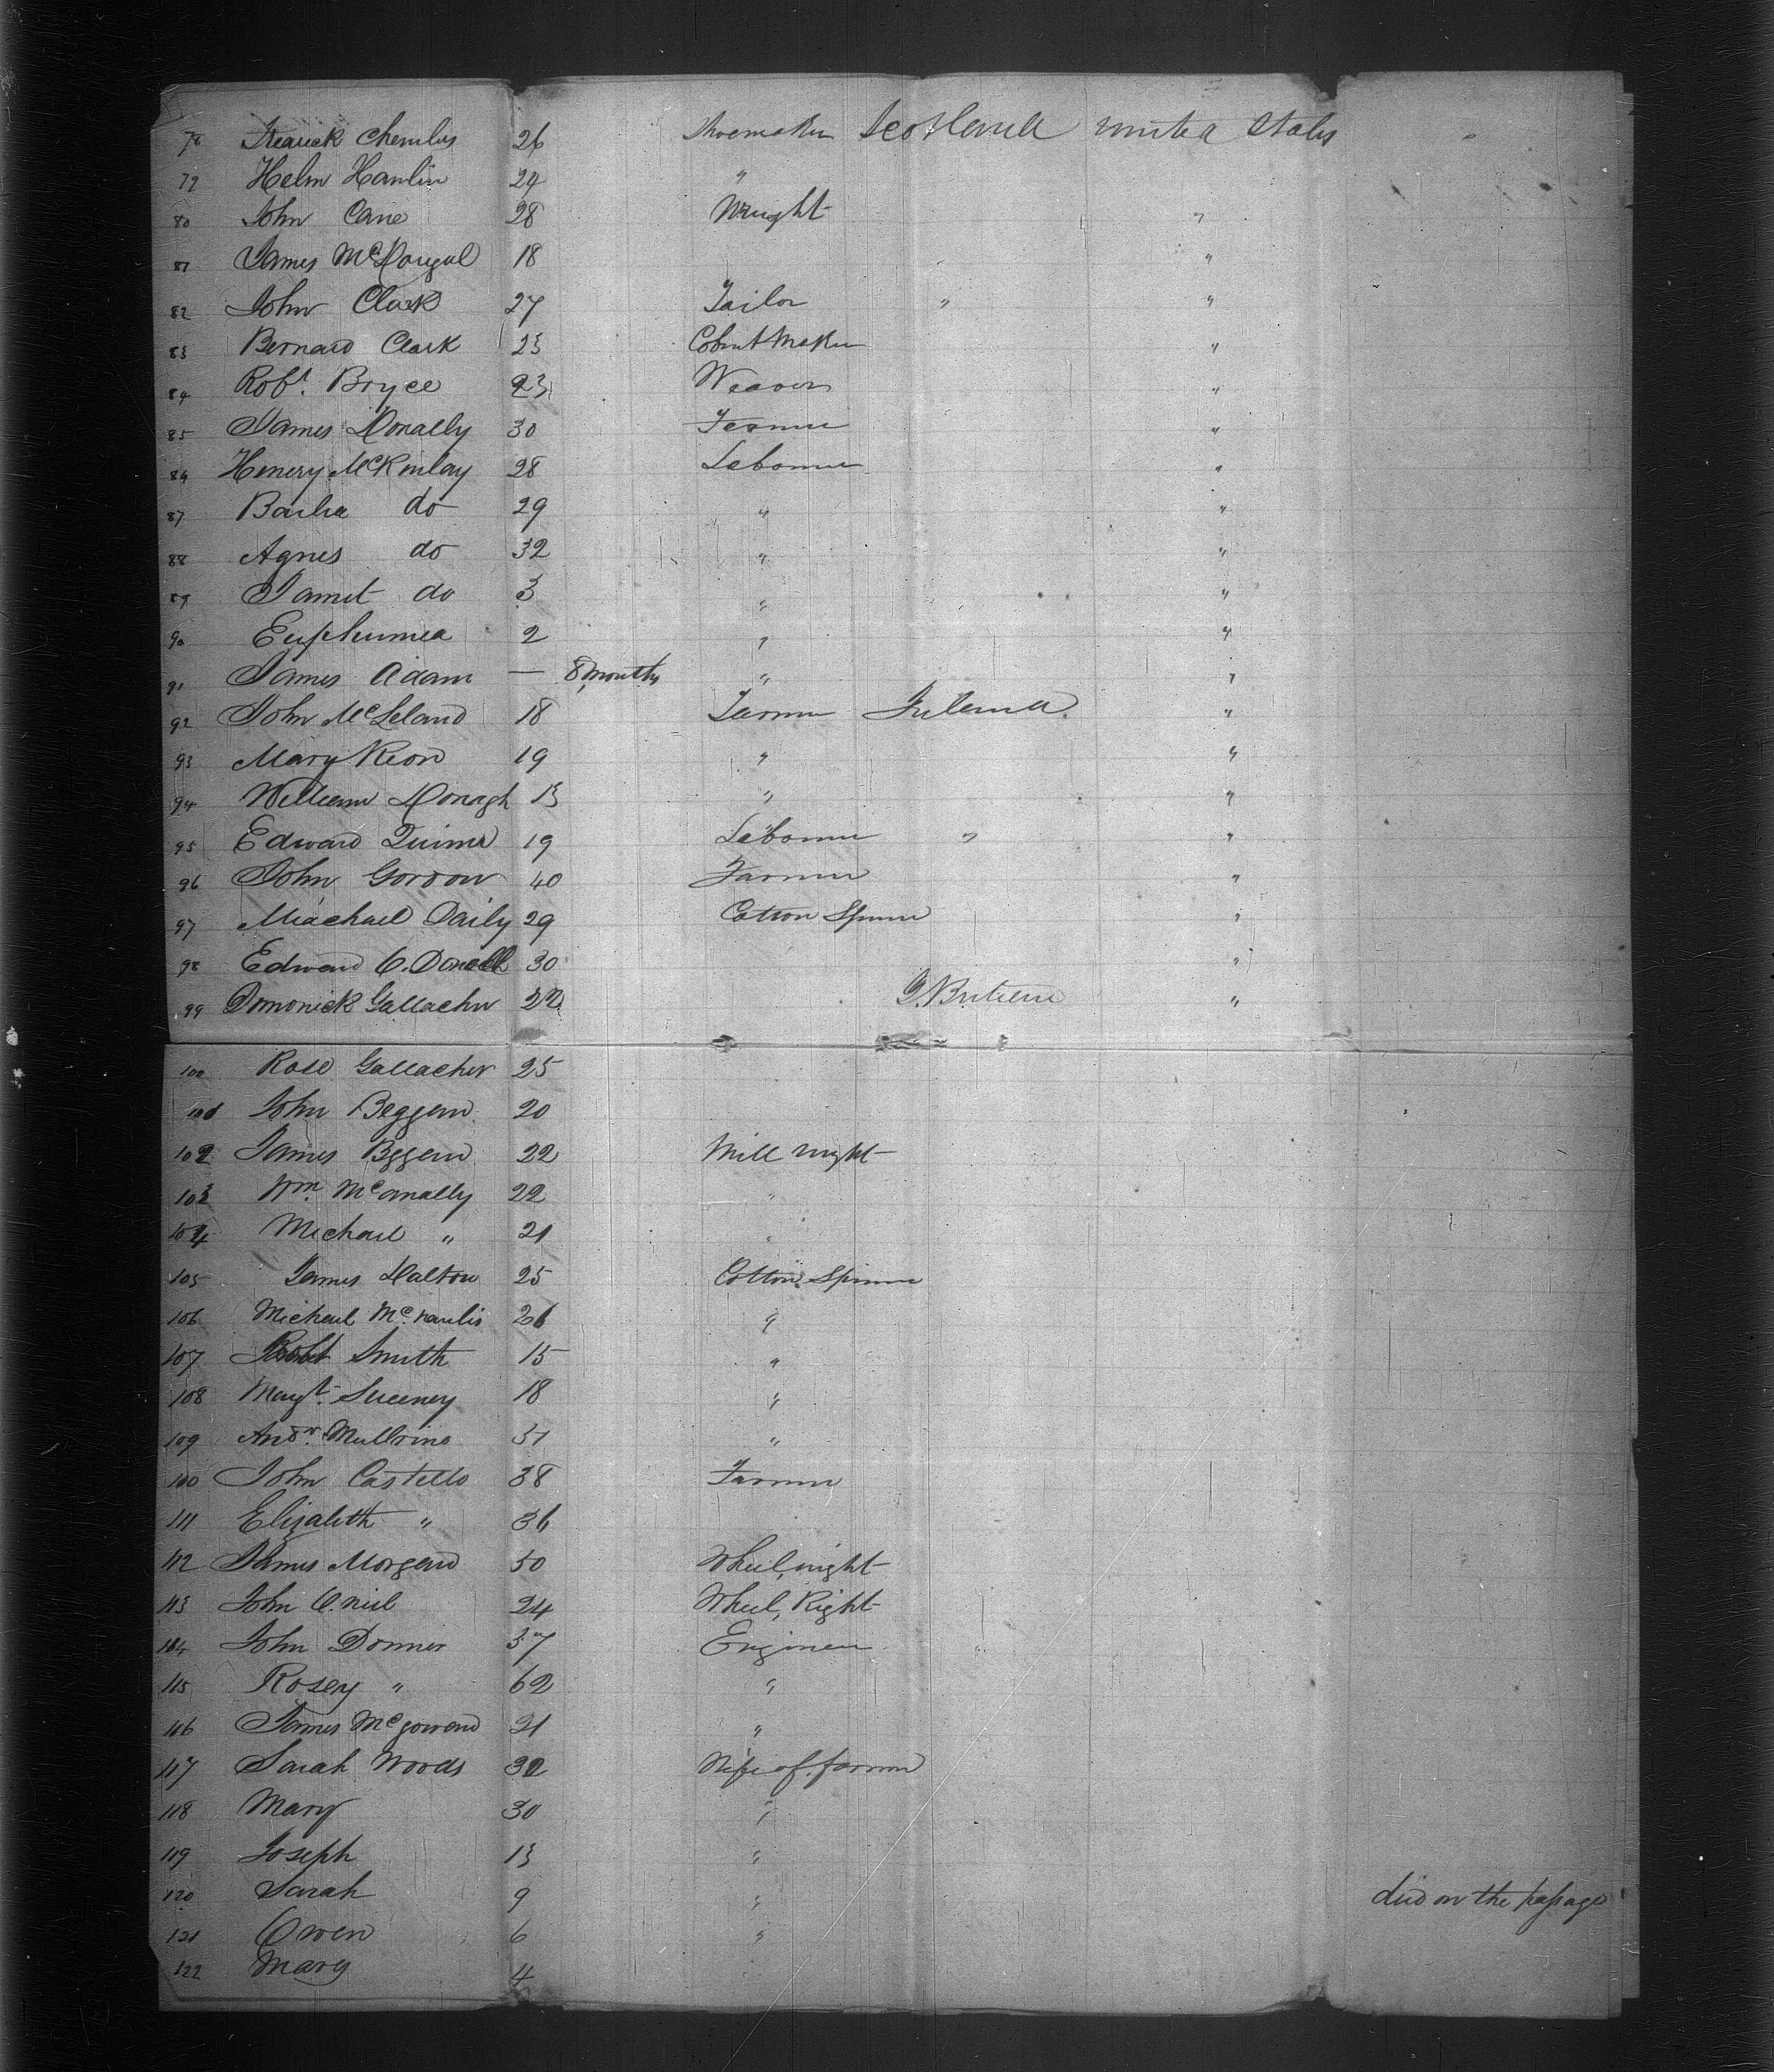 78 26 Shoemaker Scotland United States
79 Helm Hamlin 24 "
80 John Cane 28 Wright "
81 James McDougal 18 "
82 John Clark 27 Tailor " "
83 Bernard Clark 23 Cobnt Maker "
84 Robt. Bryce 23 Weaver "
85 James Donally 30 Farmer "
86 Henery McKinlay 28 Labourer "
87 do 29 " "
88 Agnes do 32 " "
89 Janet do 3 " "
90 Euphumea 2 " "
91 James Adam — 8 months " "
92 John McLeland 18 Farmer Ireland. "
93 Mary Keon 19 " "
94 William Donagh 13 " "
95 Edward 19 Labourer " "
96 John Gordon 40 Farmer "
97 Miachael Daily 29 Cotton Spinner "
98 Edward O. Donell 30 "
99 Domonick Gallacher 22 G. Britain "
100 Rose Gallacher 25
101 John Beggan 20
102 James Beggan 22 Mill wright
103 Wm. McAnally 22 "
104 Michael " 21 "
105 James Dalton 25 Cotton Spinner
106 Michael 26 "
107 Robt Smith 15 "
108 Margt. Sweeney 18 "
109 Andw. Mullrine 31 "
100 John Castello 38 Farmer
111 Elizabeth " 36
112 James Morgan 50 Wheel, wright
113 John O. niel 24 Wheel, Right
114 John Donner 37 Engineer
115 Rosey " 62 "
116 James McGowan 21 "
117 Sarah Woods 32 Wife of farmer
118 Mary 30 "
119 Joseph 13 "
120 Sarah 9 " died on the passage
121 Owen 6 "
122 Mary 4